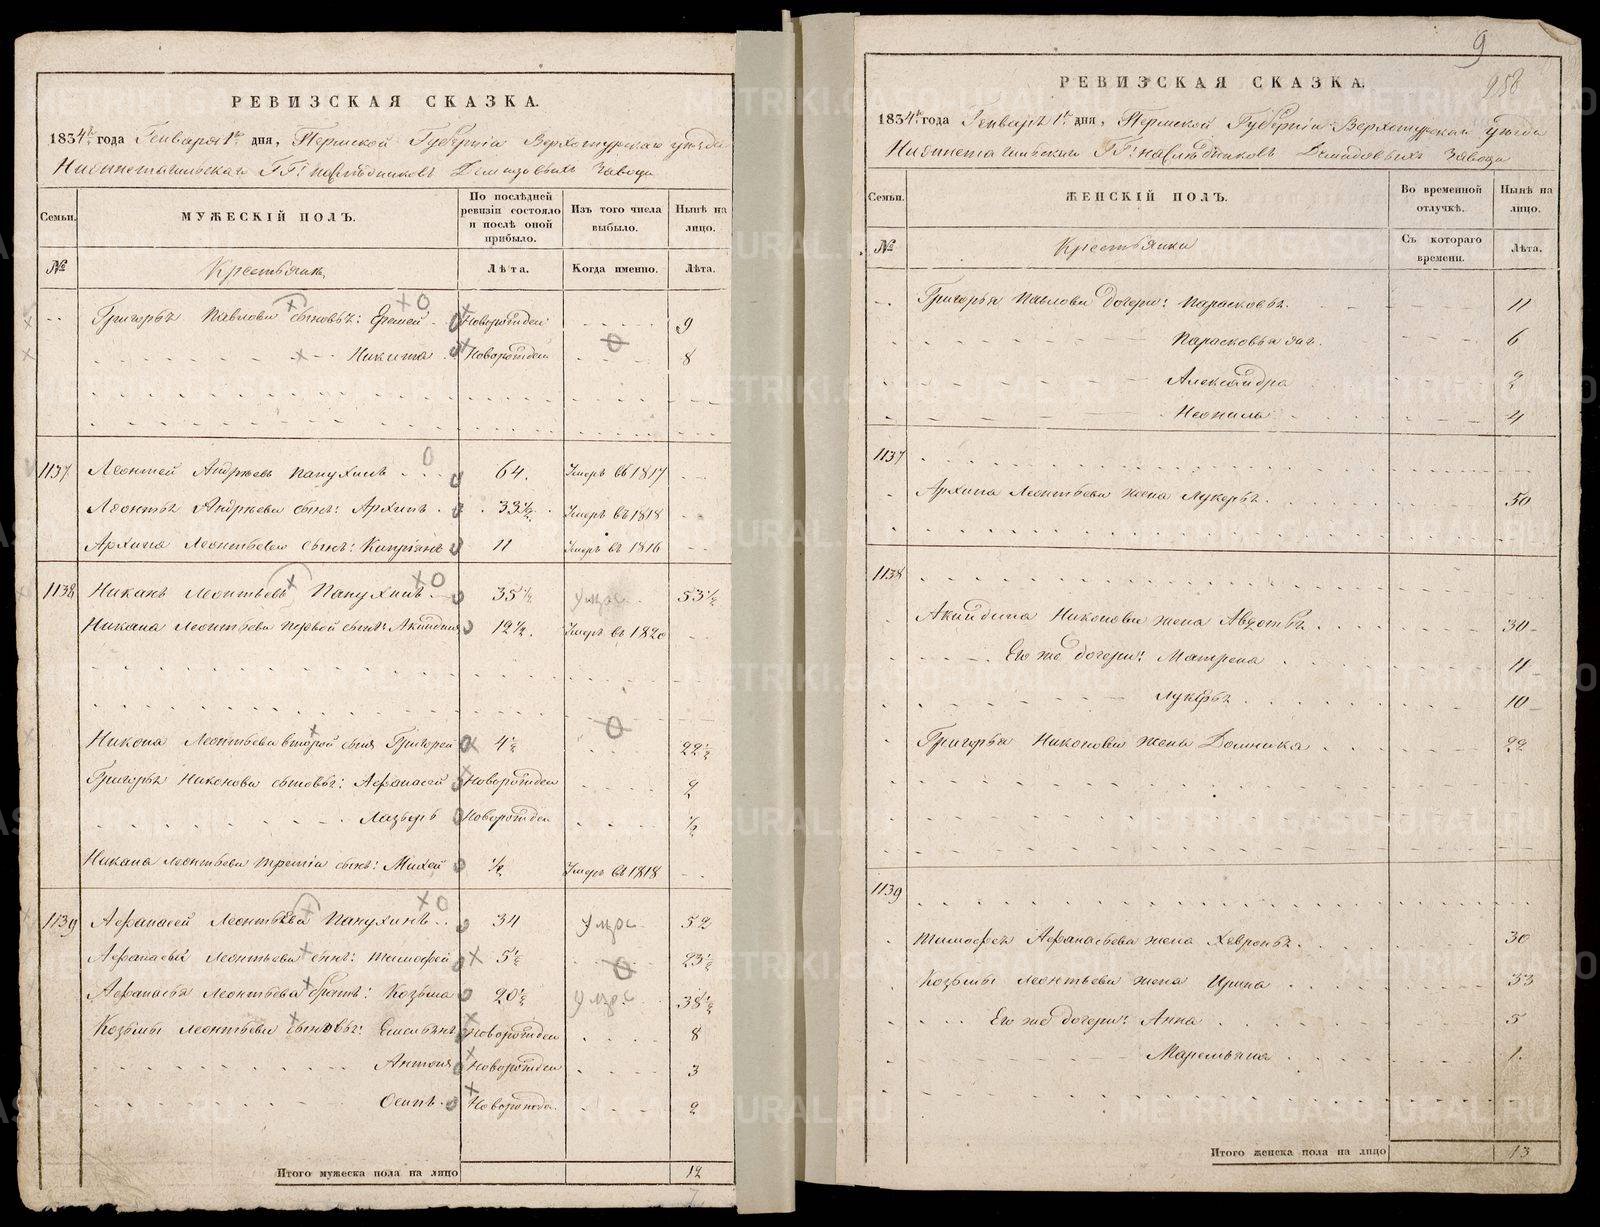 РЕВИЗСКАЯ СКАЗКА.
1834го года Генваря 1го дня, Пермской Губерніи Верхотурскаго уѣзда
Нижнетагильскаго ГГ: наслѣдниковъ Демидовыхъ Завода
Семьи.
МУЖЕСКІЙ ПОЛЪ.
По послѣдней ревизіи состояло и послѣ оной прибыло.
Изъ того числа выбыло.
Нынѣ на лицо.
№ Крестьянъ Лѣта. Когда именно. Лѣта.
Григорья Павлова сыновья: Еремей Новорожден 9
Никита Новорожден 8
1137 Леонтей Андреевъ Папухинъ 64. Умеръ въ 1817
Леонтья Андреева сынъ: Архипъ 33½ Умеръ въ 1818
Архипа Леонтьева сынъ: Кипріянъ 11 Умеръ въ 1816
1138 Никанъ Леонтьевъ Папухинъ 35½ умре 53½
Никана Леонтьева первой сынъ: Акиндинъ 12½. Умеръ въ 1820
Никона Леонтьева второй сынъ Григорей 4½ 22½
Григорья Никонова сыновья: Афанасей Новорожден 2
Лазарь Новорожден ½
Никана Леонтьева третіи сынъ: Михей ½ Умеръ въ 1818
1139 Афанасей Леонтьева Папухинъ 34 умре 52
Афанасьи Леонтьева сынъ: Тимофей 5½ 23½
Афанасья Леонтьева братъ: Козьма 20½ умре 38½
Козьмы Леонтьева сыновья: Емельянъ Новорожден 8
Антонъ Новорожден 3
Осипъ Новорожден 2
Итого мужеска пола на лицо 12
9
РЕВИЗСКАЯ СКАЗКА.
1834го года Генваря 1го дня, Пермской Губерніи Верхотурскаго уѣзда
Нижнетагильскаго ГГ: наслѣдниковъ Демидовыхъ Завода
Семьи.
ЖЕНСКІЙ ПОЛЪ.
Во временной отлучкѣ.
Нынѣ на лицо.
№ Крестьянки Съ котораго времени. Лѣта.
Григорья Павлова дочери: Парасковья 11
Парасковья 6
Александра 2
Неонила 4
1137
Архипа Леонтьева жена Лукерья 50
1138
Акиндина Никонова жена Авдотья 30
Его же дочери: Матрена 11
Лукерья 10
Григорья Никонова жена Домника 22
1139
Тимофея Афанасьева жена Хевронья 30
Козьмы Леонтьева жена Ирина 33
Его же дочери: Анна 5
Маремьяна 1
Итого женска пола на лицо 13